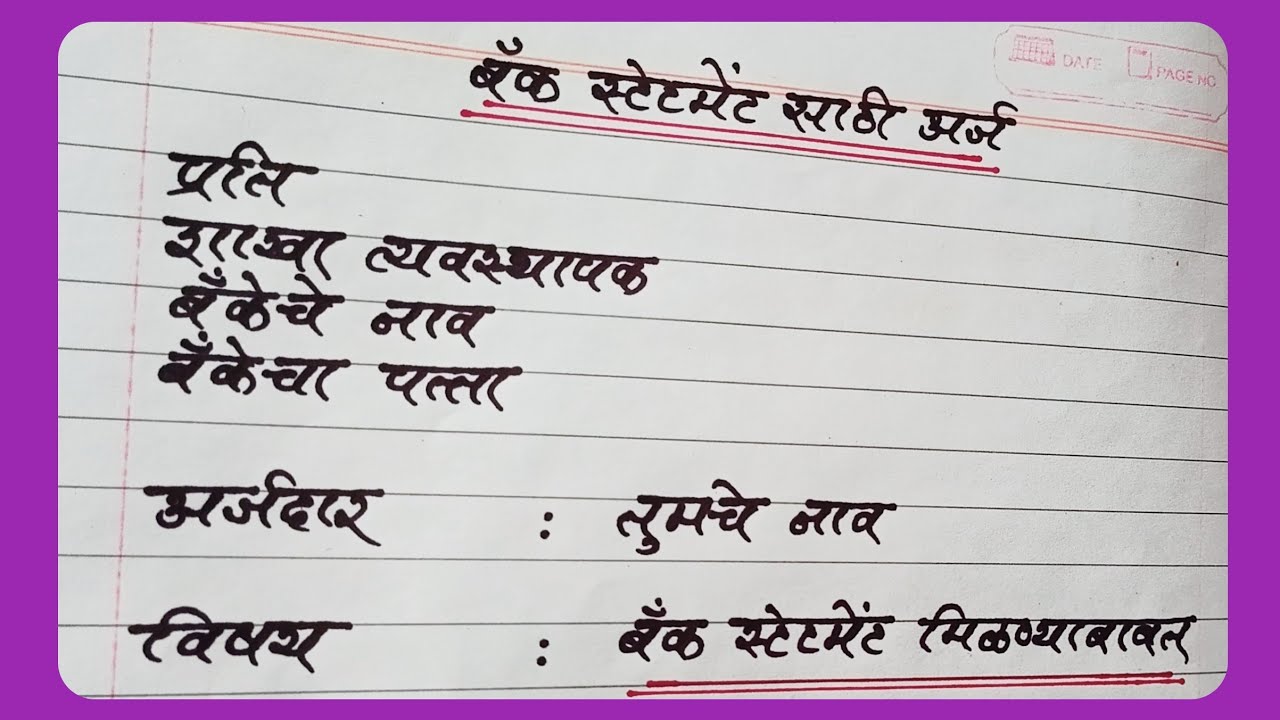 DATE PAGE NO
बँक स्टेटमेंट साठी अर्ज
प्रति
शाखा व्यवस्थापक
बँकेचे नाव
बँकेचा पत्ता
अर्जदार : तुमचे नाव
विषय : बँक स्टेटमेंट मिळण्याबाबत